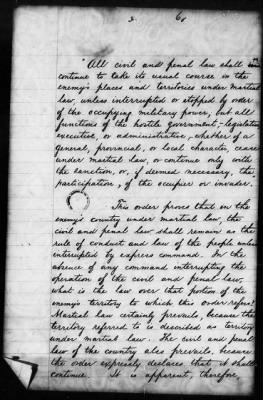 2. 6.
"All civil and penal law shall
continue to take its usual course in the
enemy's places and territories under martial
law, unless interrupted or stopped by order
of the occupying military power; but all
functions of the hostile government - legislative
executive, or administrative, whether of a
general, provincial, or local character, cease
under martial law, or continue only with
the sanction, or, if deemed necessary, the
participation, of the occupier or invader.
This order proves that in the
enemy's country under martial law, the
civil and penal law shall remain as the
rule of conduct and law of the people unless
interrupted by express command. In the
absence of any command interrupting the
operation of the civil and penal law,
what is the law over that portion of the
enemy's territory to which this order refers?
Martial law certainly prevails, because the
territory referred to is described as territory
under martial law. The civil and penal
law of the country also prevails, because
the order expressly declares that it shall
continue. It is apparent, therefore,